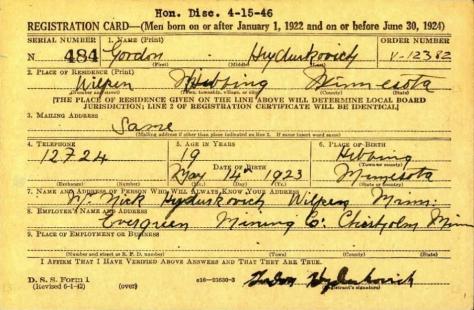 Hon. Disc. 4-15-46
REGISTRATION CARD—(Men born on or after January 1, 1922 and on or before June 30, 1924)
SERIAL NUMBER 1. NAME (Print) ORDER NUMBER
N 484 Gordon Hydukovich V-12382
(First) (Middle) (Last)
2. PLACE OF RESIDENCE (Print)
Wilpen Hibbing Minnesota
(Number and street) (Town, township, village, or city) (County) (State)
[THE PLACE OF RESIDENCE GIVEN ON THE LINE ABOVE WILL DETERMINE LOCAL BOARD
JURISDICTION; LINE 2 OF REGISTRATION CERTIFICATE WILL BE IDENTICAL]
3. MAILING ADDRESS
Same
[Mailing address if other than place indicated on line 2. If same insert word same]
4. TELEPHONE 5. AGE IN YEARS 6. PLACE OF BIRTH
12724 19 Hibbing
DATE OF BIRTH (Town or county)
May 14th 1923 Minnesota
(Exchange) (Number) (Mo.) (Day) (Yr.) (State or country)
7. NAME AND ADDRESS OF PERSON WHO WILL ALWAYS KNOW YOUR ADDRESS
Mr. Nick Hydukovich Wilpen Minn.
8. EMPLOYER'S NAME AND ADDRESS
Evergreen Mining Co. Chisholm Minn
9. PLACE OF EMPLOYMENT OR BUSINESS
(Number and street or R. F. D. number) (Town) (County) (State)
I AFFIRM THAT I HAVE VERIFIED ABOVE ANSWERS AND THAT THEY ARE TRUE.
D. S. S. Form 1
(Revised 6-1-42) (over) Hydukovich
(Registrant's signature)